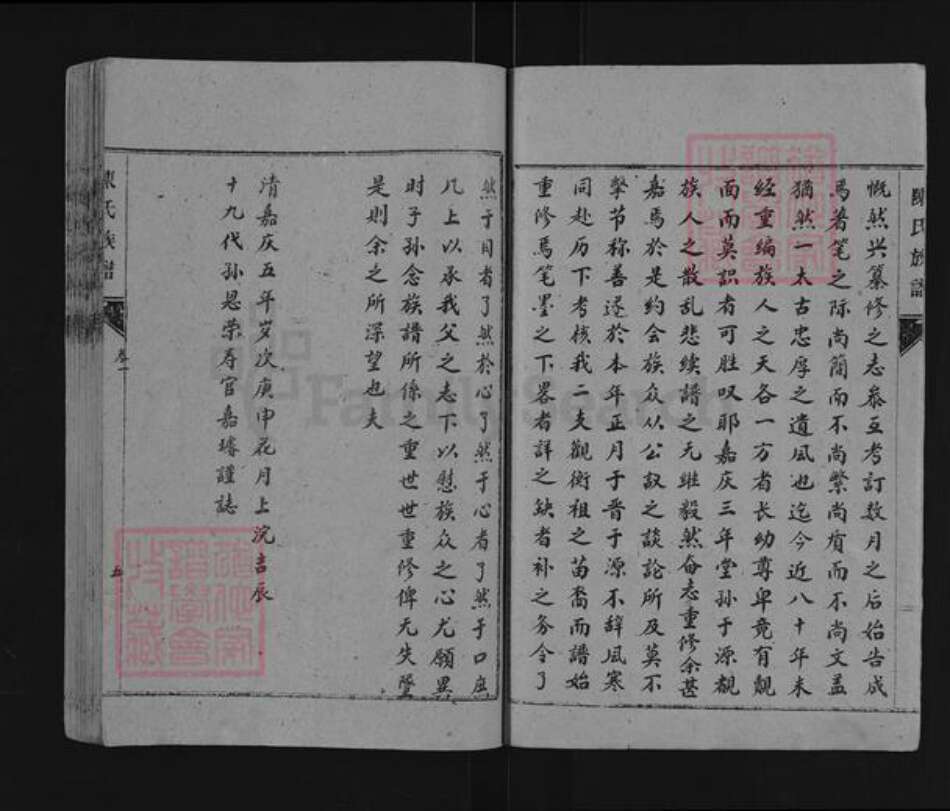 陳氏族譜
慨然兴纂修之志叅互考訂数月之后始告成
焉著笔之际尚簡而不尚繁尚質而不尚文盖
犹然一太古忠厚之遺风也迄今近八十年未
经重编族人之天各一方者长幼尊卑竟有觌
面而莫識者可胜叹耶嘉庆三年堂孙于源覩
族人之散乱悲续譜之无继毅然奋志重修余甚
嘉焉於是约会族众从公议之談論所及莫不
擊节称善遂於本年正月于晋于源不辞风寒
同赴历下考核我二夫觀衡祖之苗裔而譜始
重修焉笔墨之下畧者詳之缺者补之务令了
然于目者了然於心了然于心者了然于口庶
几上以承我父之志下以慰族众之心尤願異
时子孙念族譜所係之重世世重修俾无失墜
是则余之所深望也夫
清嘉庆五年岁次庚申花月上浣吉辰
十九代孙恩荣寿官嘉璿謹誌
陳氏族譜
卷一
五
FamilySearch